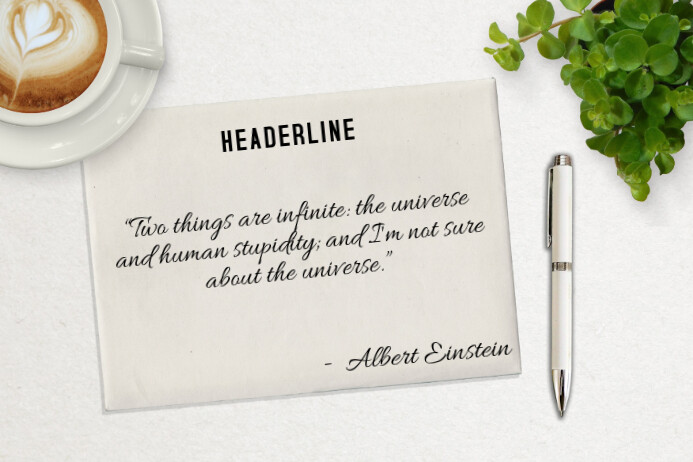 HEADERLINE
“Two things are infinite: the universe
and human stupidity; and I'm not sure
about the universe.”
- Albert Einstein